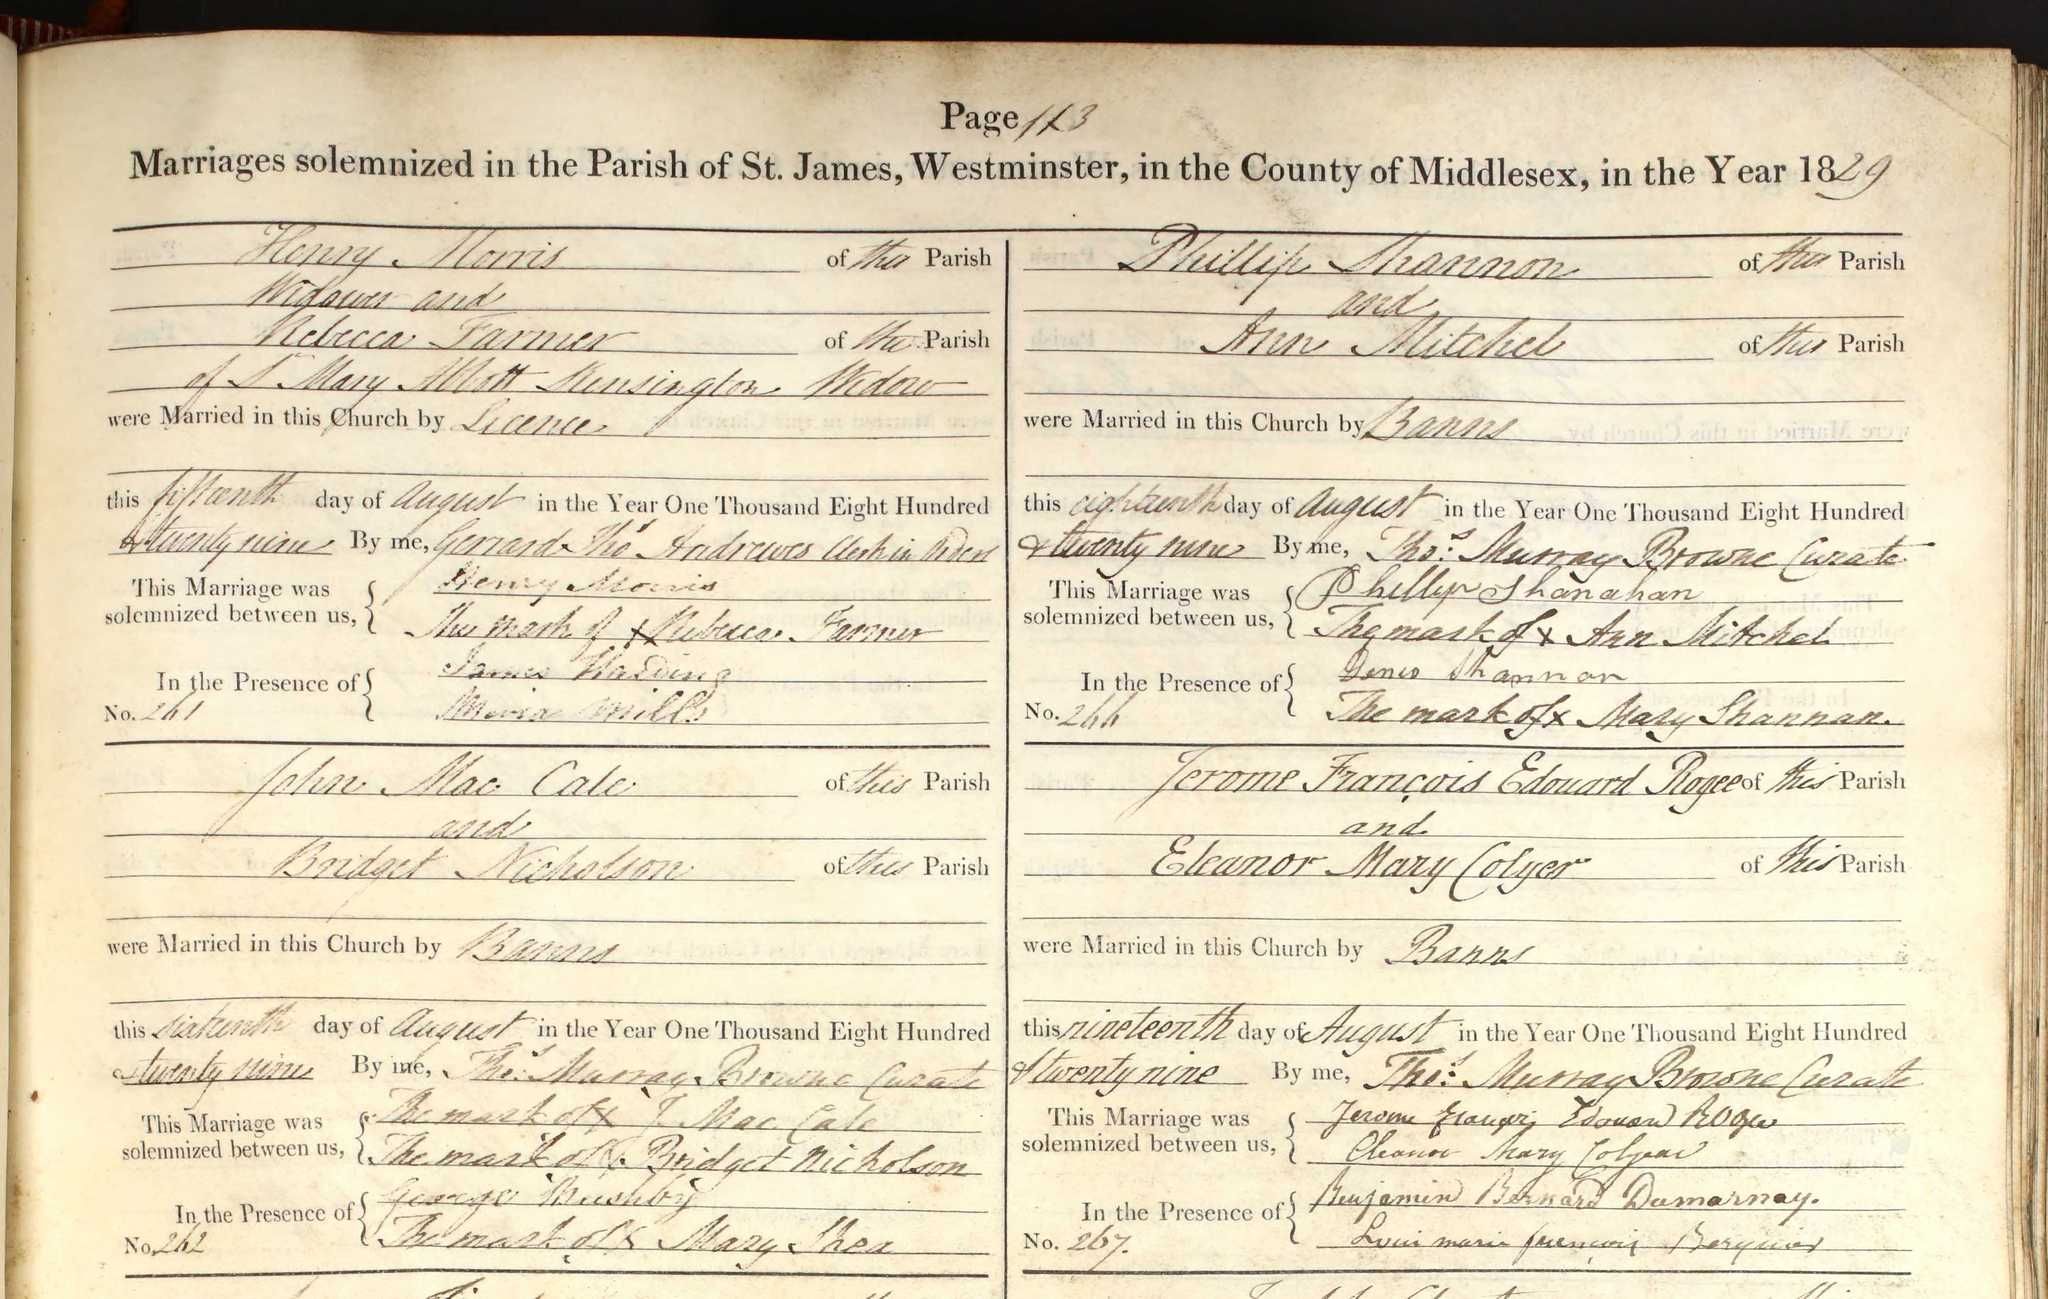 Page 113
Marriages solemnized in the Parish of St. James, Westminster, in the County of Middlesex, in the Year 1829
Henry Morris of this Parish
Widower and
Rebecca Farmer of the Parish
of St Mary Abbott Kensington Widow
were Married in this Church by Licence
this fifteenth day of August in the Year One Thousand Eight Hundred
& twenty nine By me, Gerrard Thos Andrewes Clerk in Orders
This Marriage was solemnized between us, Henry Morris
The mark of x Rebecca Farmer
In the Presence of James Harding
Maria Mills
No. 261
John Mac Cale of this Parish
and
Bridget Nicholson of this Parish
were Married in this Church by Banns
this sixteenth day of August in the Year One Thousand Eight Hundred
& twenty nine By me, Thos. Murray Browne Curate
This Marriage was solemnized between us, The mark of x J Mac Cale
The mark of x Bridget Nicholson
In the Presence of George Bushby
The mark of x Mary Shea
No. 262
Phillip Shannon of this Parish
and
Ann Mitchel of this Parish
were Married in this Church by Banns
this eighteenth day of August in the Year One Thousand Eight Hundred
& twenty nine By me, Thos. Murray Browne Curate
This Marriage was solemnized between us, Phillip Shanahan
The mark of x Ann Mitchel
In the Presence of Denis Shannon
The mark of x Mary Shannan.
No. 266
Jerome François Edouard Rogee of this Parish
and
Eleanor Mary Colyer of this Parish
were Married in this Church by Banns
this nineteenth day of August in the Year One Thousand Eight Hundred
& twenty nine By me, Thos. Murray Browne Curate
This Marriage was solemnized between us, Jerome François Edouard Rogee
Eleanor Mary Colyear
In the Presence of Benjamin Bernard Dumarnay.
Louis marie françois
No. 267.